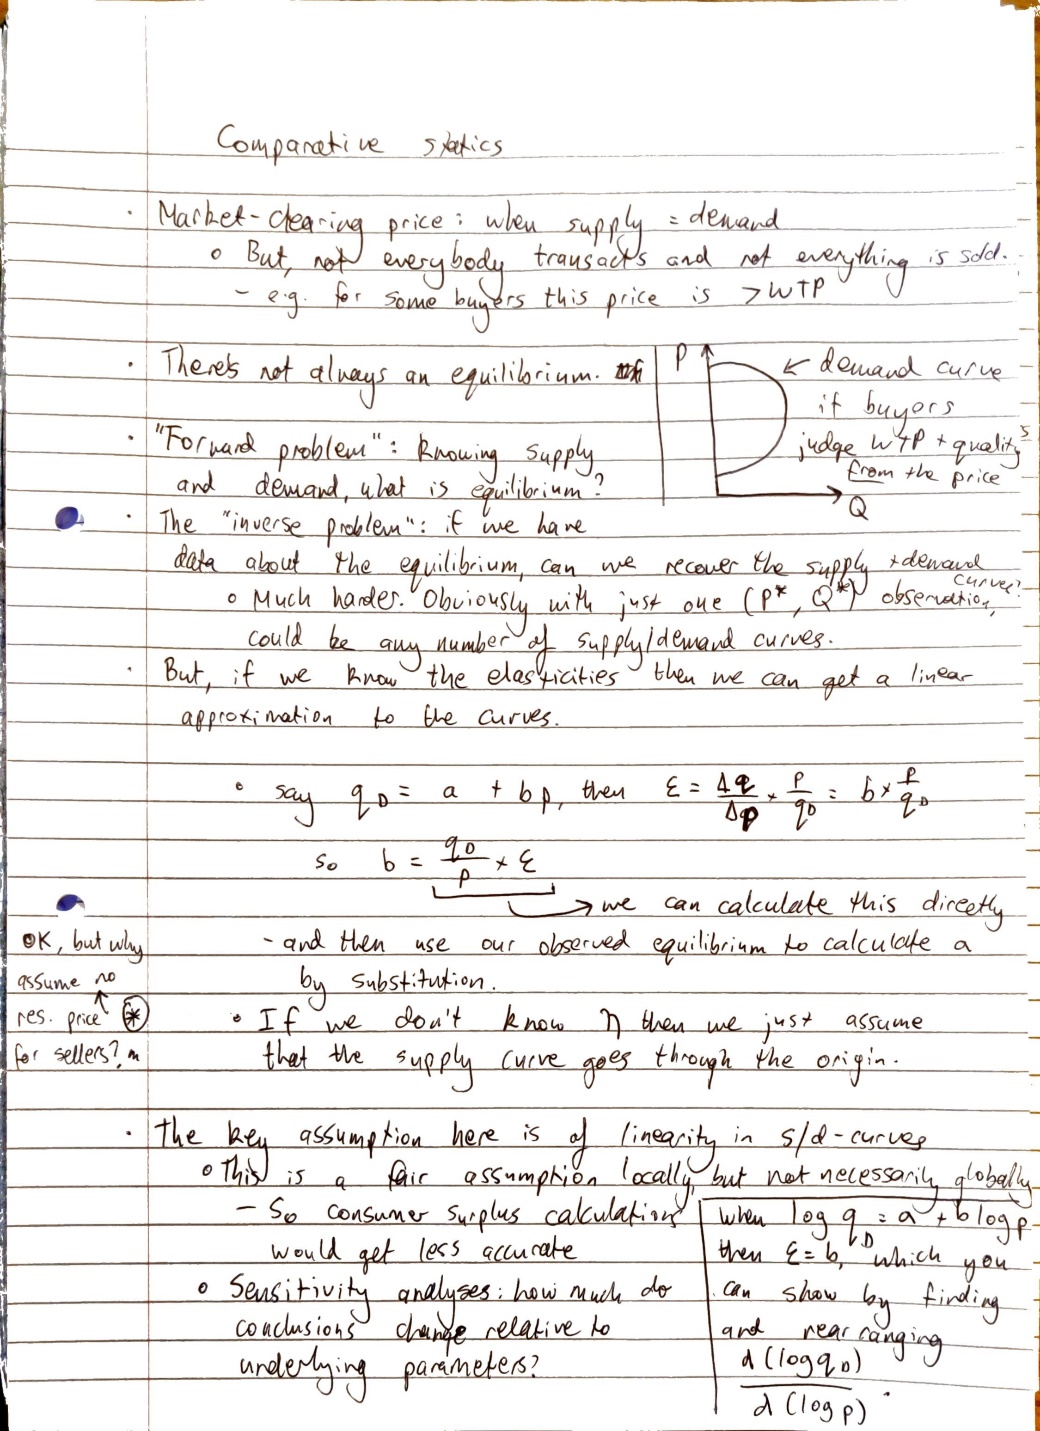 Comparative statics
· Market-clearing price: when supply = demand
o But, not everybody transacts and not everything is sold.
- e.g. for some buyers this price is > WTP
· There's not always an equilibrium.
P
← demand curve
if buyers
judge WTP + quality
from the price
Q
· "Forward problem": knowing supply
and demand, what is equilibrium?
· The "inverse problem": if we have
data about the equilibrium, can we recover the supply + demand
curves?
o Much harder. Obviously with just one (P*, Q*) observation,
could be any number of supply/demand curves.
· But, if we know the elasticities then we can get a linear
approximation to the curves.
• say q_D = a + bp, then ε = Δq/Δp × p/q_D = b × p/q_D
so b = q_D/p × ε
→ we can calculate this directly
- and then use our observed equilibrium to calculate a
by substitution.
• If we don't know η then we just assume
that the supply curve goes through the origin.
OK, but why
assume no
res. price *
for sellers?
· The key assumption here is of linearity in s/d-curves
o This is a fair assumption locally, but not necessarily globally
- So consumer surplus calculations
would get less accurate
o Sensitivity analyses: how much do
conclusions change relative to
underlying parameters?
when log q_D = a + b log p
then ε = b, which you
can show by finding
and rearranging
d(log q_D)
d(log p) .